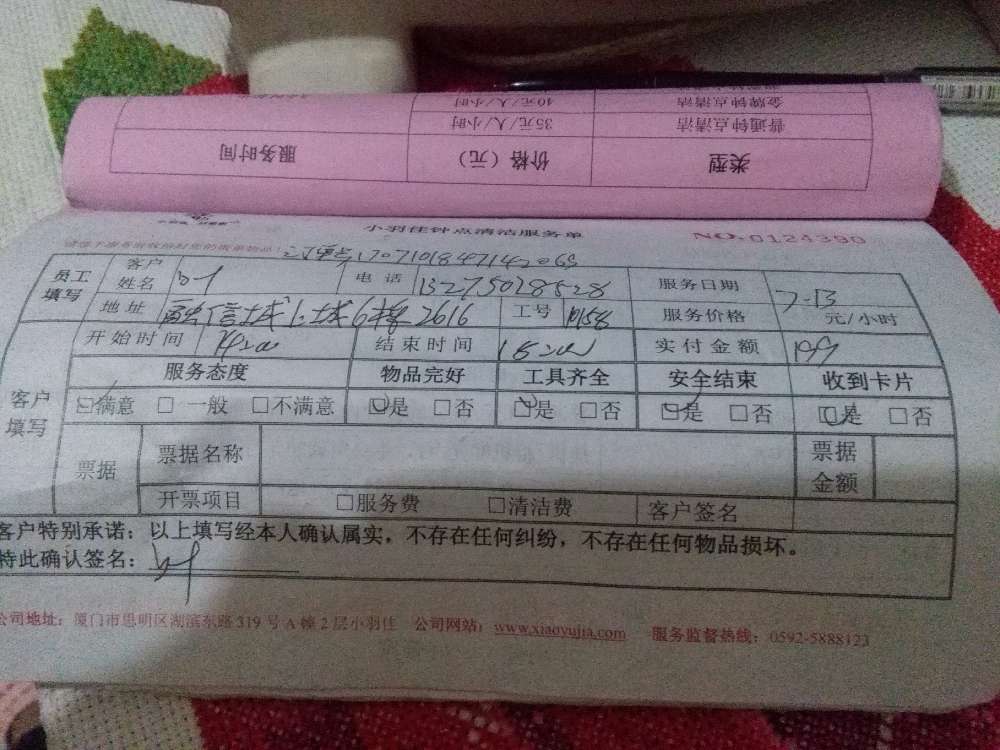 金牌钟点清洁 40元/人/小时
普通钟点清洁 35元/人/小时
类型 价格（元） 服务时间
小羽佳钟点清洁服务单 NO.0124390
员工填写 客户姓名 电话 服务日期 7-13
地址 融信城上城6栋2616 工号 服务价格 元/小时
开始时间 结束时间 实付金额
客户填写 服务态度 物品完好 工具齐全 安全结束 收到卡片
☑满意 □一般 □不满意 ☑是 □否 ☑是 □否 ☑是 □否 ☑是 □否
票据 票据名称 票据金额
开票项目 □服务费 □清洁费 客户签名
客户特别承诺：以上填写经本人确认属实，不存在任何纠纷，不存在任何物品损坏。
特此确认签名：
公司地址：厦门市思明区湖滨东路319号A幢2层小羽佳 公司网站：www.xiaoyujia.com 服务监督热线：0592-5888123